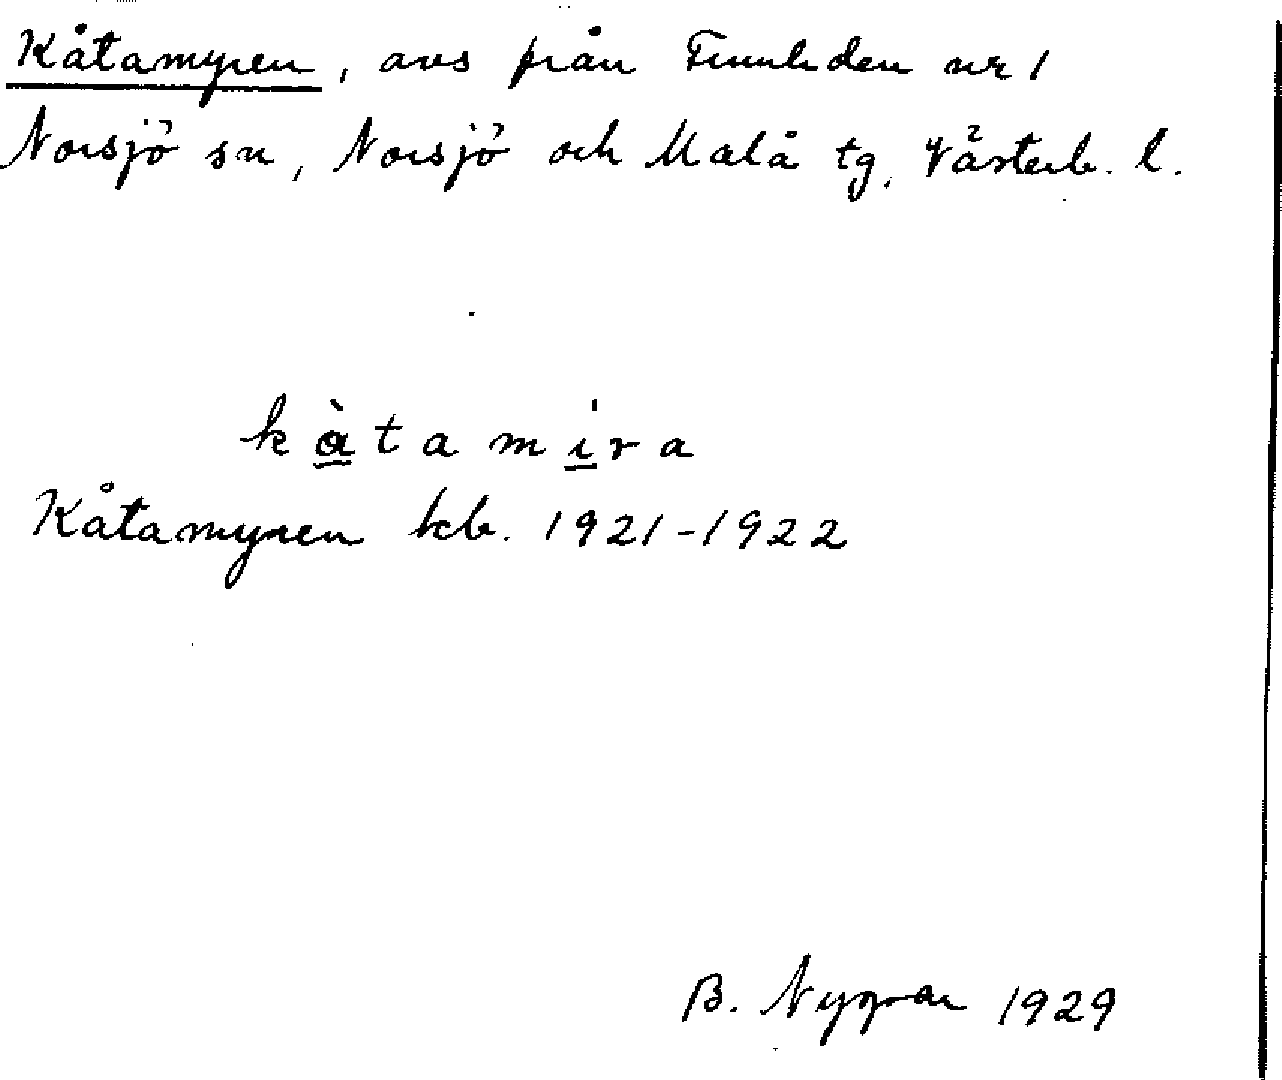 Kåtamyren, avs från Finnliden nr 1
Norsjö sn, Norsjö och Malå tg, Västerb. l.
kàtamira
Kåtamyren kb. 1921-1922
B. Nygran 1929